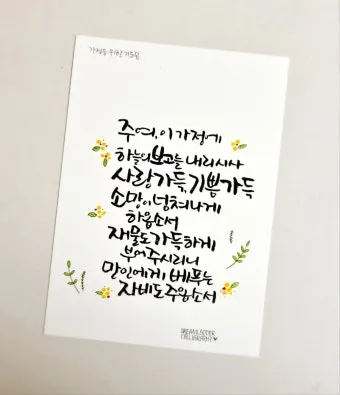 가정을 위한 기도문
주여, 이 가정에
하늘의 보고를 내리시사
사랑가득, 기쁨가득
소망이 넘쳐나게
하옵소서
재물도 가득하게
부어주시리니
만인에게 베푸는
자비도 주옵소서
DREAMLADDER
CALLIGRAPHY